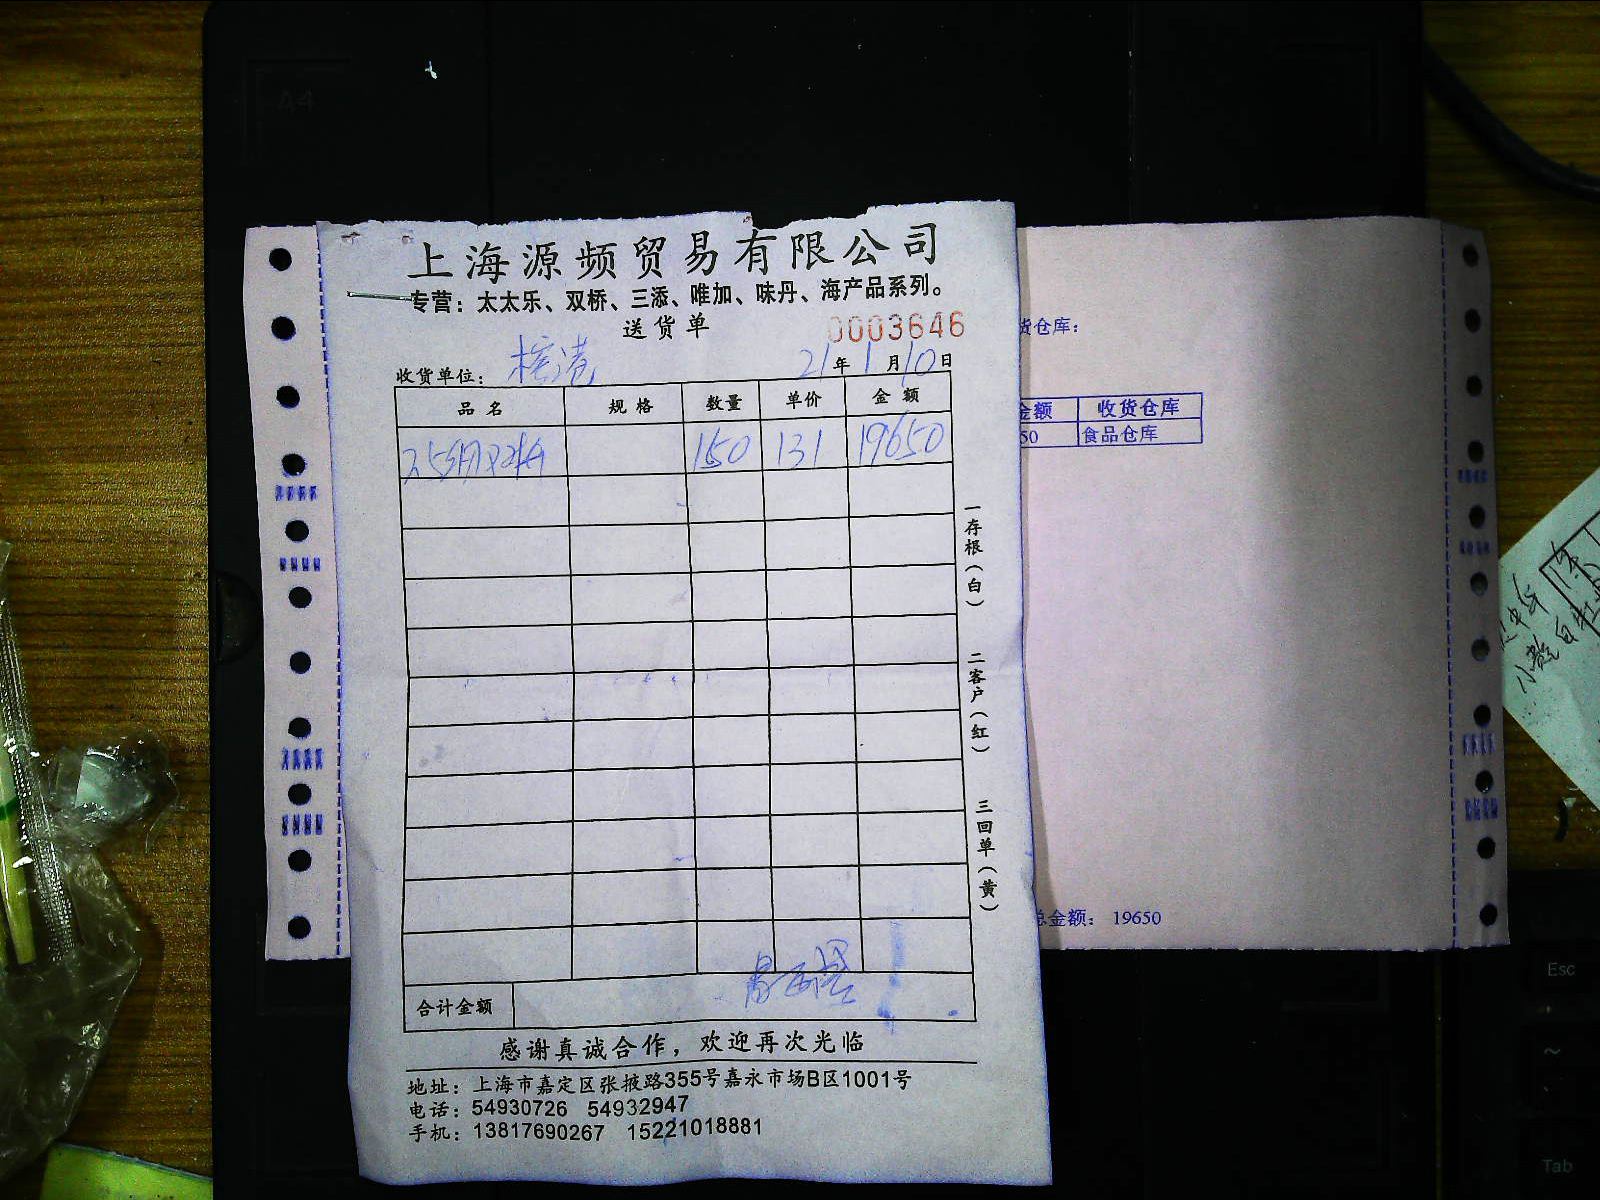 上海源频贸易有限公司
专营：太太乐、双桥、三添、唯加、味丹、海产品系列。
送货单 0003646
收货单位： 21年1月10日
品名 规格 数量 单价 金额
150 131 19650
一存根（白） 二客户（红） 三回单（黄）
合计金额
感谢真诚合作，欢迎再次光临
地址：上海市嘉定区张掖路355号嘉永市场B区1001号
电话：54930726 54932947
手机：13817690267 15221018881
货仓库：
金额 收货仓库
50 食品仓库
总金额： 19650
A4
Esc
~
Tab